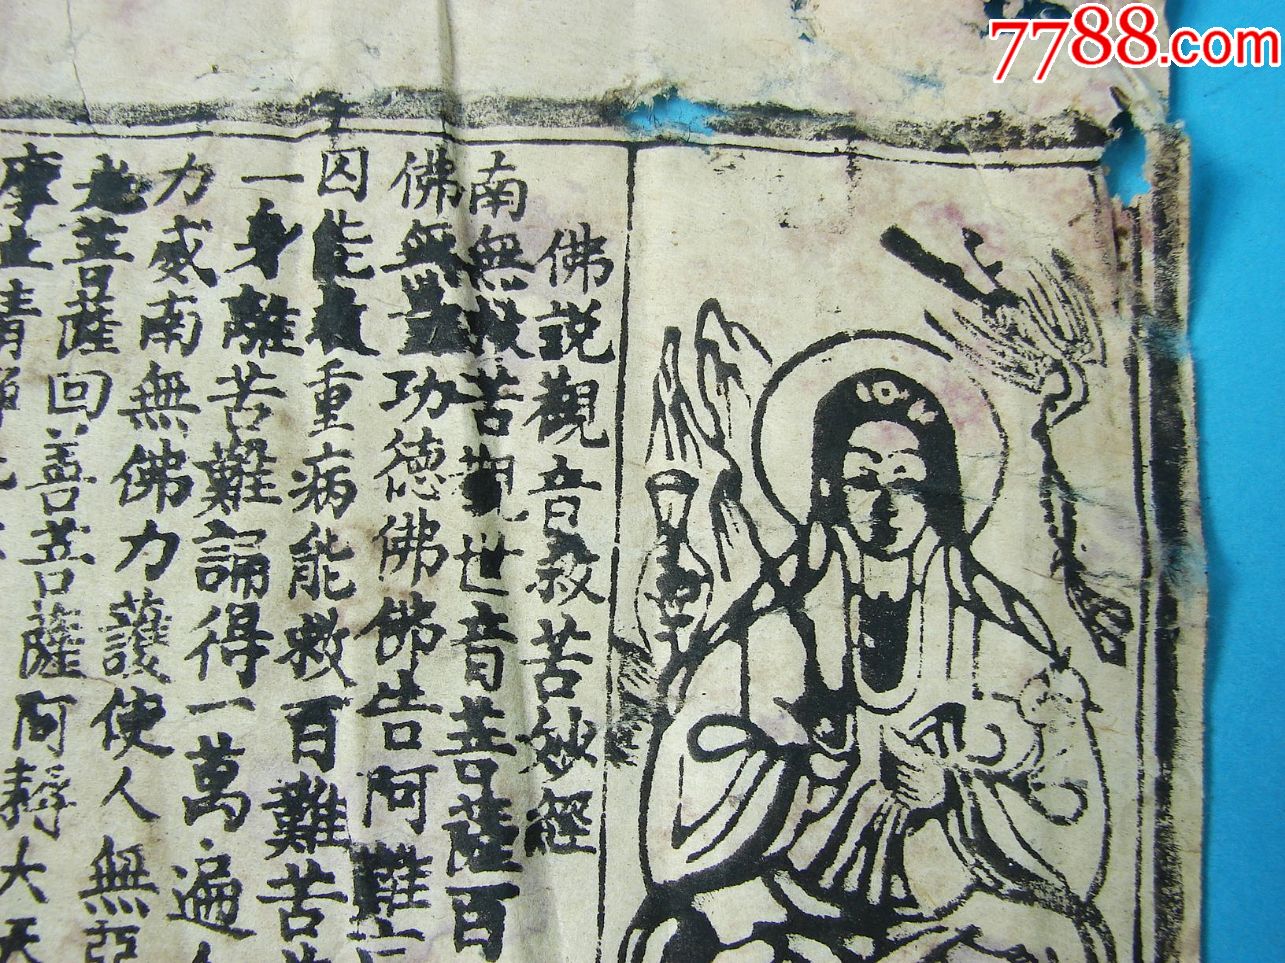 7788.com
佛説觀音救苦妙經
南無救苦觀世音菩薩百
佛無量功德佛佛告阿難
囚能救重病能救百難苦
一身離苦難誦得一萬遍
力威南無佛力護使人無
菩薩回善菩薩阿耨大天